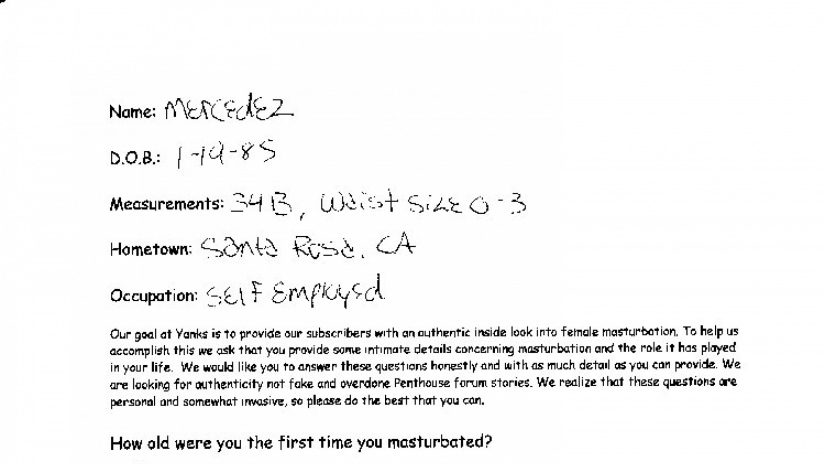 Name: MERCEDEZ
D.O.B.: 1-19-85
Measurements: 34B, Waist Size 0-3
Hometown: Santa Rosa, CA
Occupation: SELF Employed
Our goal at Yanks is to provide our subscribers with an authentic inside look into female masturbation. To help us
accomplish this we ask that you provide some intimate details concerning masturbation and the role it has played
in your life. We would like you to answer these questions honestly and with as much detail as you can provide. We
are looking for authenticity not fake and overdone Penthouse forum stories. We realize that these questions are
personal and somewhat invasive, so please do the best that you can.
How old were you the first time you masturbated?